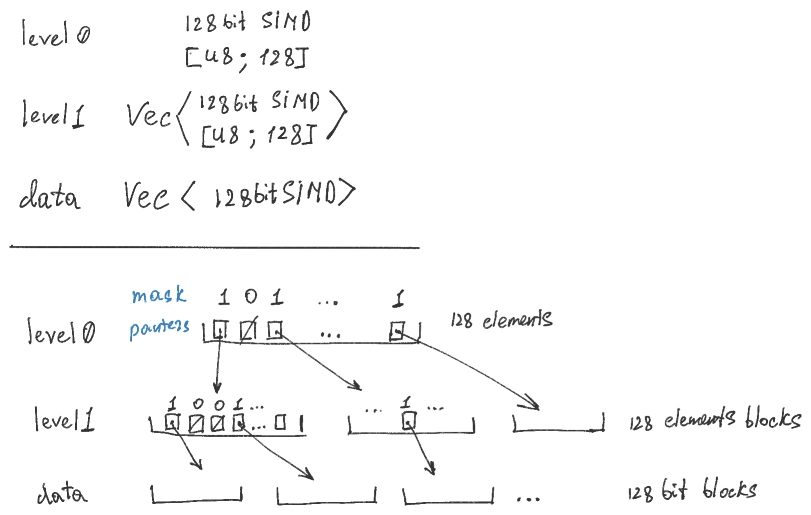 level 0 128 bit SIMD
[u8; 128]
level 1 Vec< 128 bit SIMD
[u8; 128] >
data Vec < 128 bit SIMD>
mask 1 0 1 ... 1
level 0 pointers ... 128 elements
1 0 0 1 ... ... 1 ...
level 1 ... 128 elements blocks
data ... 128 bit blocks